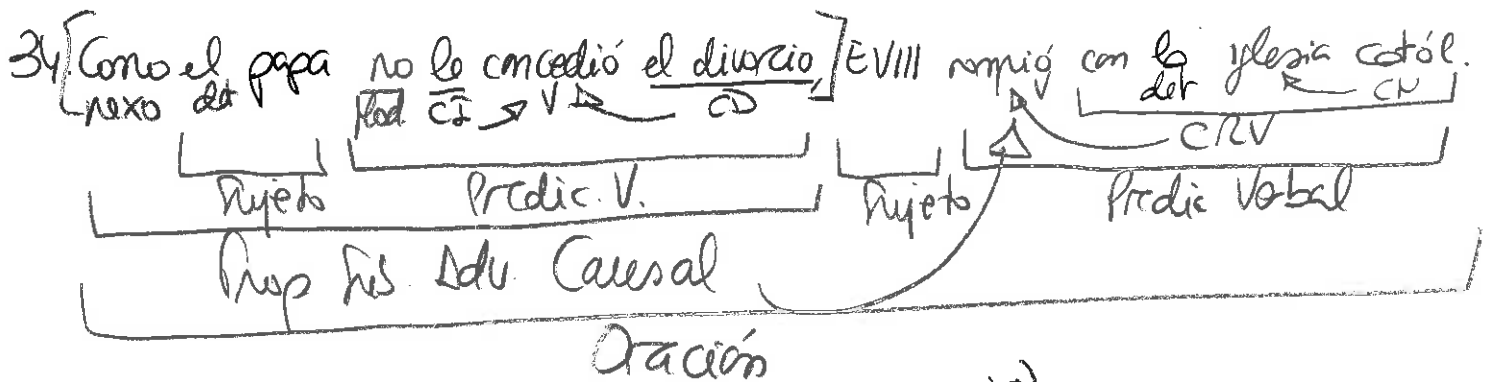 34. [Como el papa no le concedió el divorcio,] EVIII rompió con la iglesia catól.
nexo det Mod. CI V CD det CN
CRV
Sujeto Predic. V. Sujeto Predic Verbal
Prop Sub. Adv. Causal
Oración